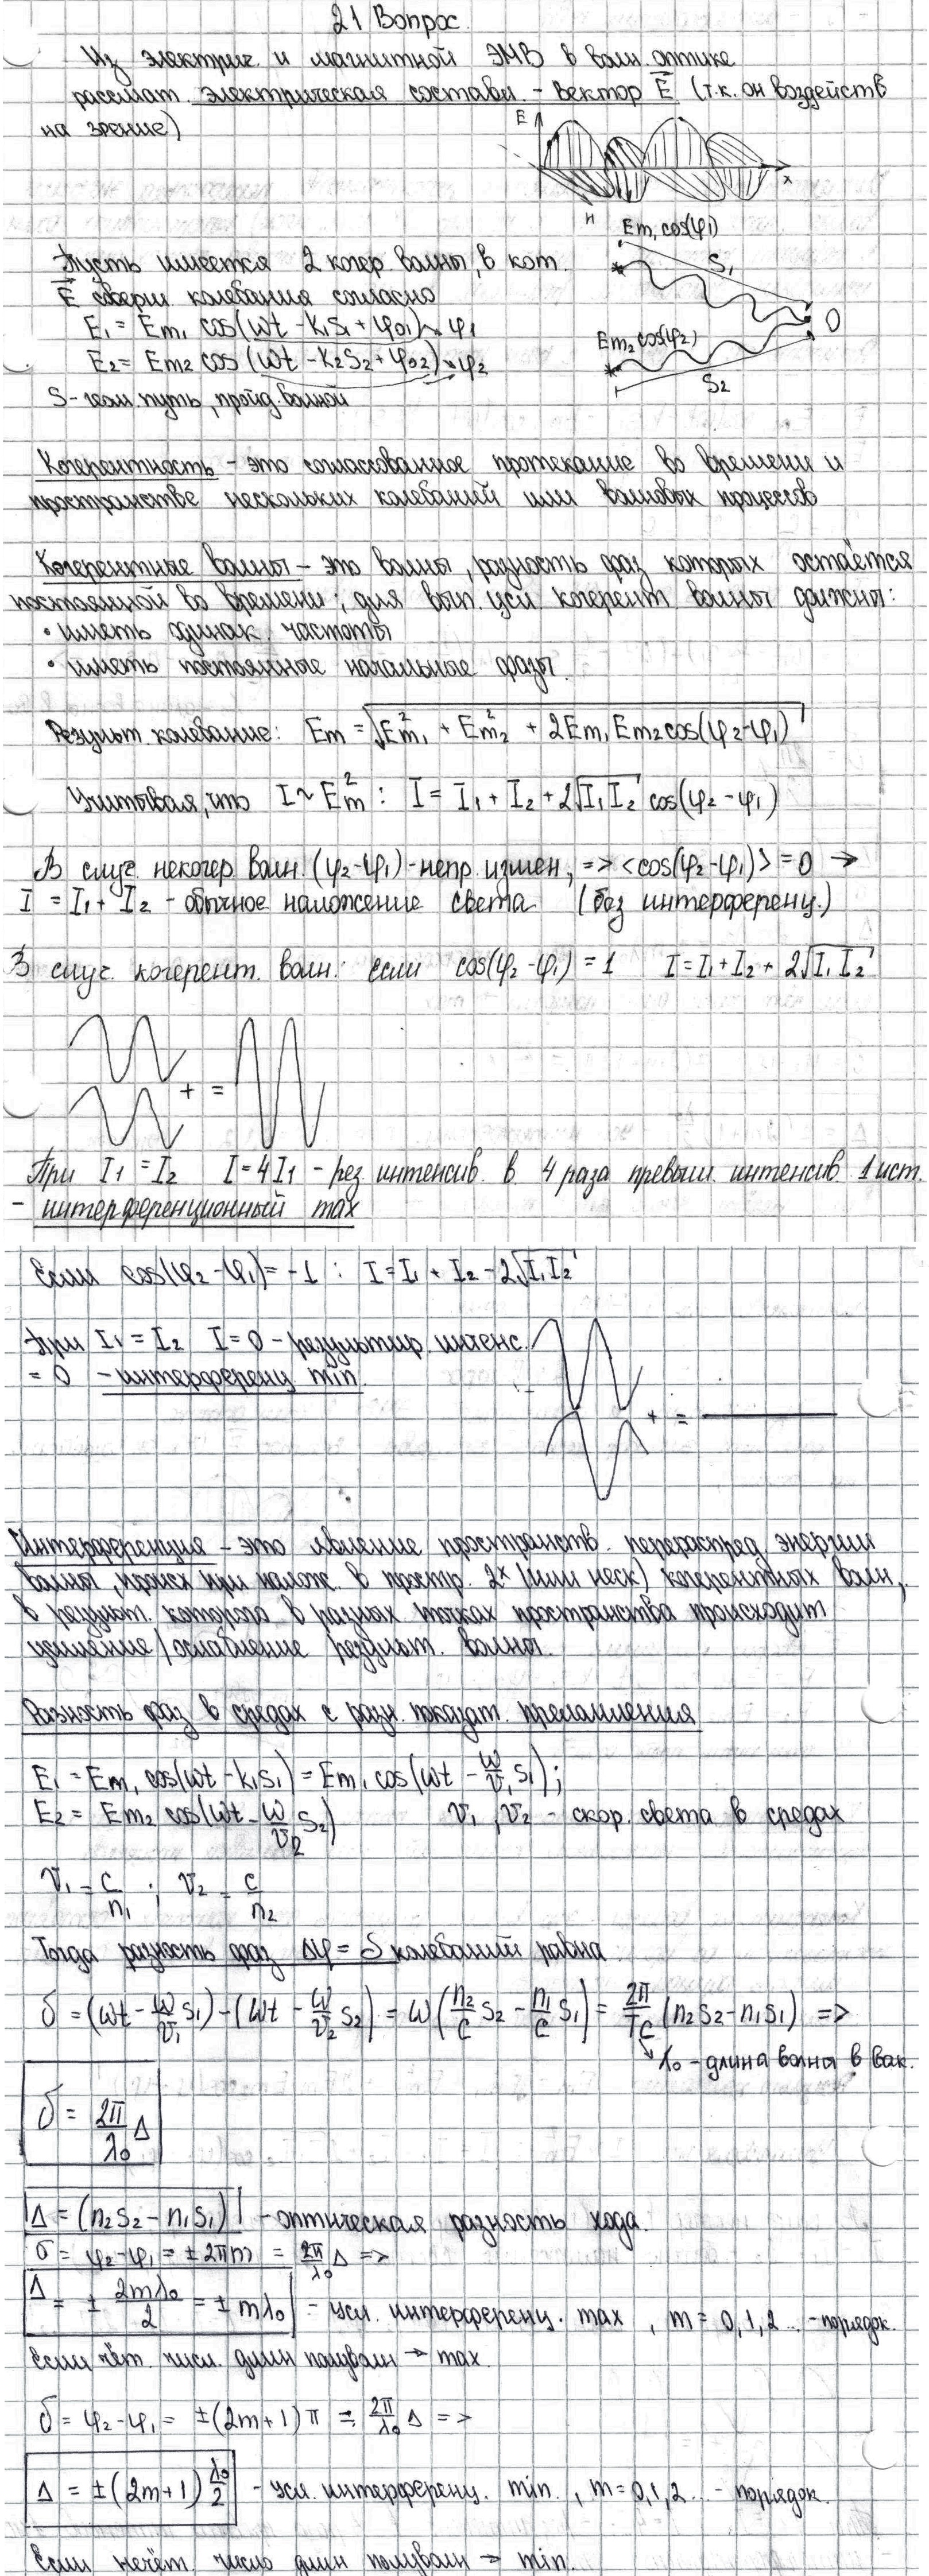 21 Вопрос.
Из электрич. и магнитной ЭМВ в волн. оптике
рассмат. электрическая составл. - вектор E⃗ (т.к. он воздейств
на зрение)
E
x
H
Em₁ cos(φ₁)
S₁
Пусть имеется 2 когер. волны, в кот.
E⃗ соверш колебания согласно
E₁ = Em₁ cos(ωt - k₁s₁ + φ₀₁) φ₁
O
Em₂ cos(φ₂)
E₂ = Em₂ cos(ωt - k₂s₂ + φ₀₂) φ₂
S₂
S - геом. путь, пройд. волной
Когерентность - это согласованное протекание во времени и
пространстве нескольких колебаний или волновых процессов
Когерентные волны - это волны, разность фаз которых остаётся
постоянной во времени; для вып. усл когерент волны должны:
• иметь одинак. частоты
• иметь постоянные начальные фазы.
Результ. колебание: Em = √(Em₁² + Em₂² + 2Em₁Em₂cos(φ₂-φ₁))
Учитывая, что I ~ Em²: I = I₁ + I₂ + 2√(I₁I₂) cos(φ₂ - φ₁)
В случ. некогер волн. (φ₂-φ₁) - непр. измен, => <cos(φ₂-φ₁)> = 0 →
I = I₁ + I₂ - обычное наложение света (без интерференц.)
В случ. когерент. волн: если cos(φ₂ - φ₁) = 1 I = I₁ + I₂ + 2√(I₁I₂)
+ =
При I₁ = I₂ I = 4I₁ - рез. интенсив. в 4 раза превыш. интенсив 1 ист.
- интерференционный max
Если cos(φ₂ - φ₁) = -1 : I = I₁ + I₂ - 2√(I₁I₂)
При I₁ = I₂ I = 0 - результир. интенс.
= 0 - интерференц min.
+ =
Интерференция - это явление пространств. перераспред энергии
волны, происх при налож. в простр. 2ˣ (или неск) когерентных волн,
в результ. которого в разных точках пространства происходит
усиление/ослабление результ. волны.
Разность фаз в средах с разн. показат. преломления
E₁ = Em₁ cos(ωt - k₁s₁) = Em₁ cos(ωt - ω/v₁ s₁);
E₂ = Em₂ cos(ωt - ω/v₂ s₂) v₁, v₂ - скор. света в средах
v₁ = c/n₁ ; v₂ = c/n₂
Тогда разность фаз Δφ = δ колебаний равна
δ = (ωt - ω/v₁ s₁) - (ωt - ω/v₂ s₂) = ω(n₂/c s₂ - n₁/c s₁) = 2π/Tc (n₂s₂ - n₁s₁) =>
λ₀ - длина волны в вак.
δ = 2π/λ₀ Δ
Δ = (n₂s₂ - n₁s₁) - оптическая разность хода.
δ = φ₂ - φ₁ = ± 2πm = 2π/λ₀ Δ =>
Δ = ± 2mλ₀/2 = ± mλ₀ - усл. интерференц. max, m = 0,1,2... - порядок.
Если чёт. числ. длин полуволн → max.
δ = φ₂ - φ₁ = ±(2m+1)π = 2π/λ₀ Δ =>
Δ = ±(2m+1) λ₀/2 - усл. интерференц. min., m = 0,1,2... - порядок.
Если нечёт. число длин полуволн → min.